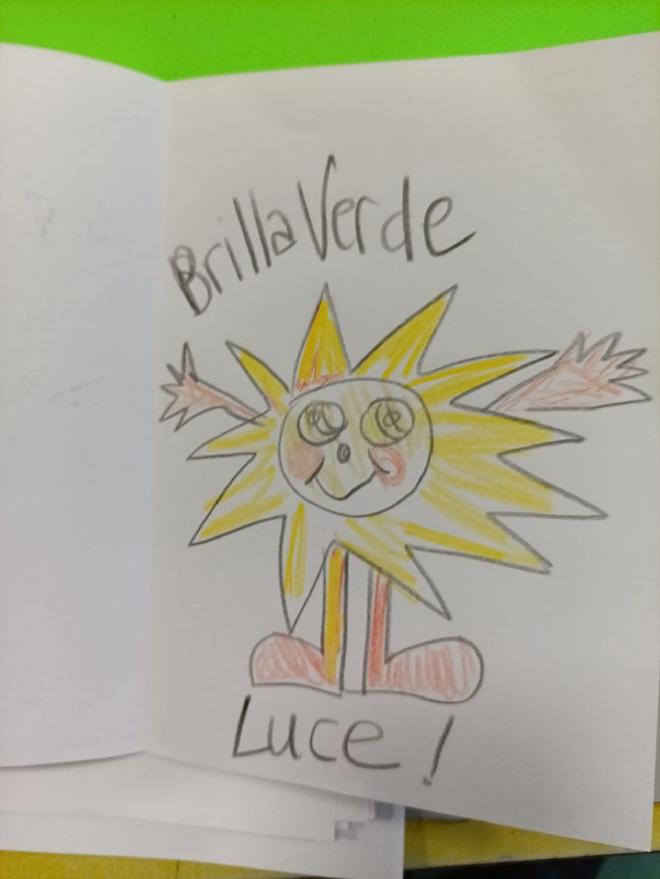 Brilla Verde
Luce!